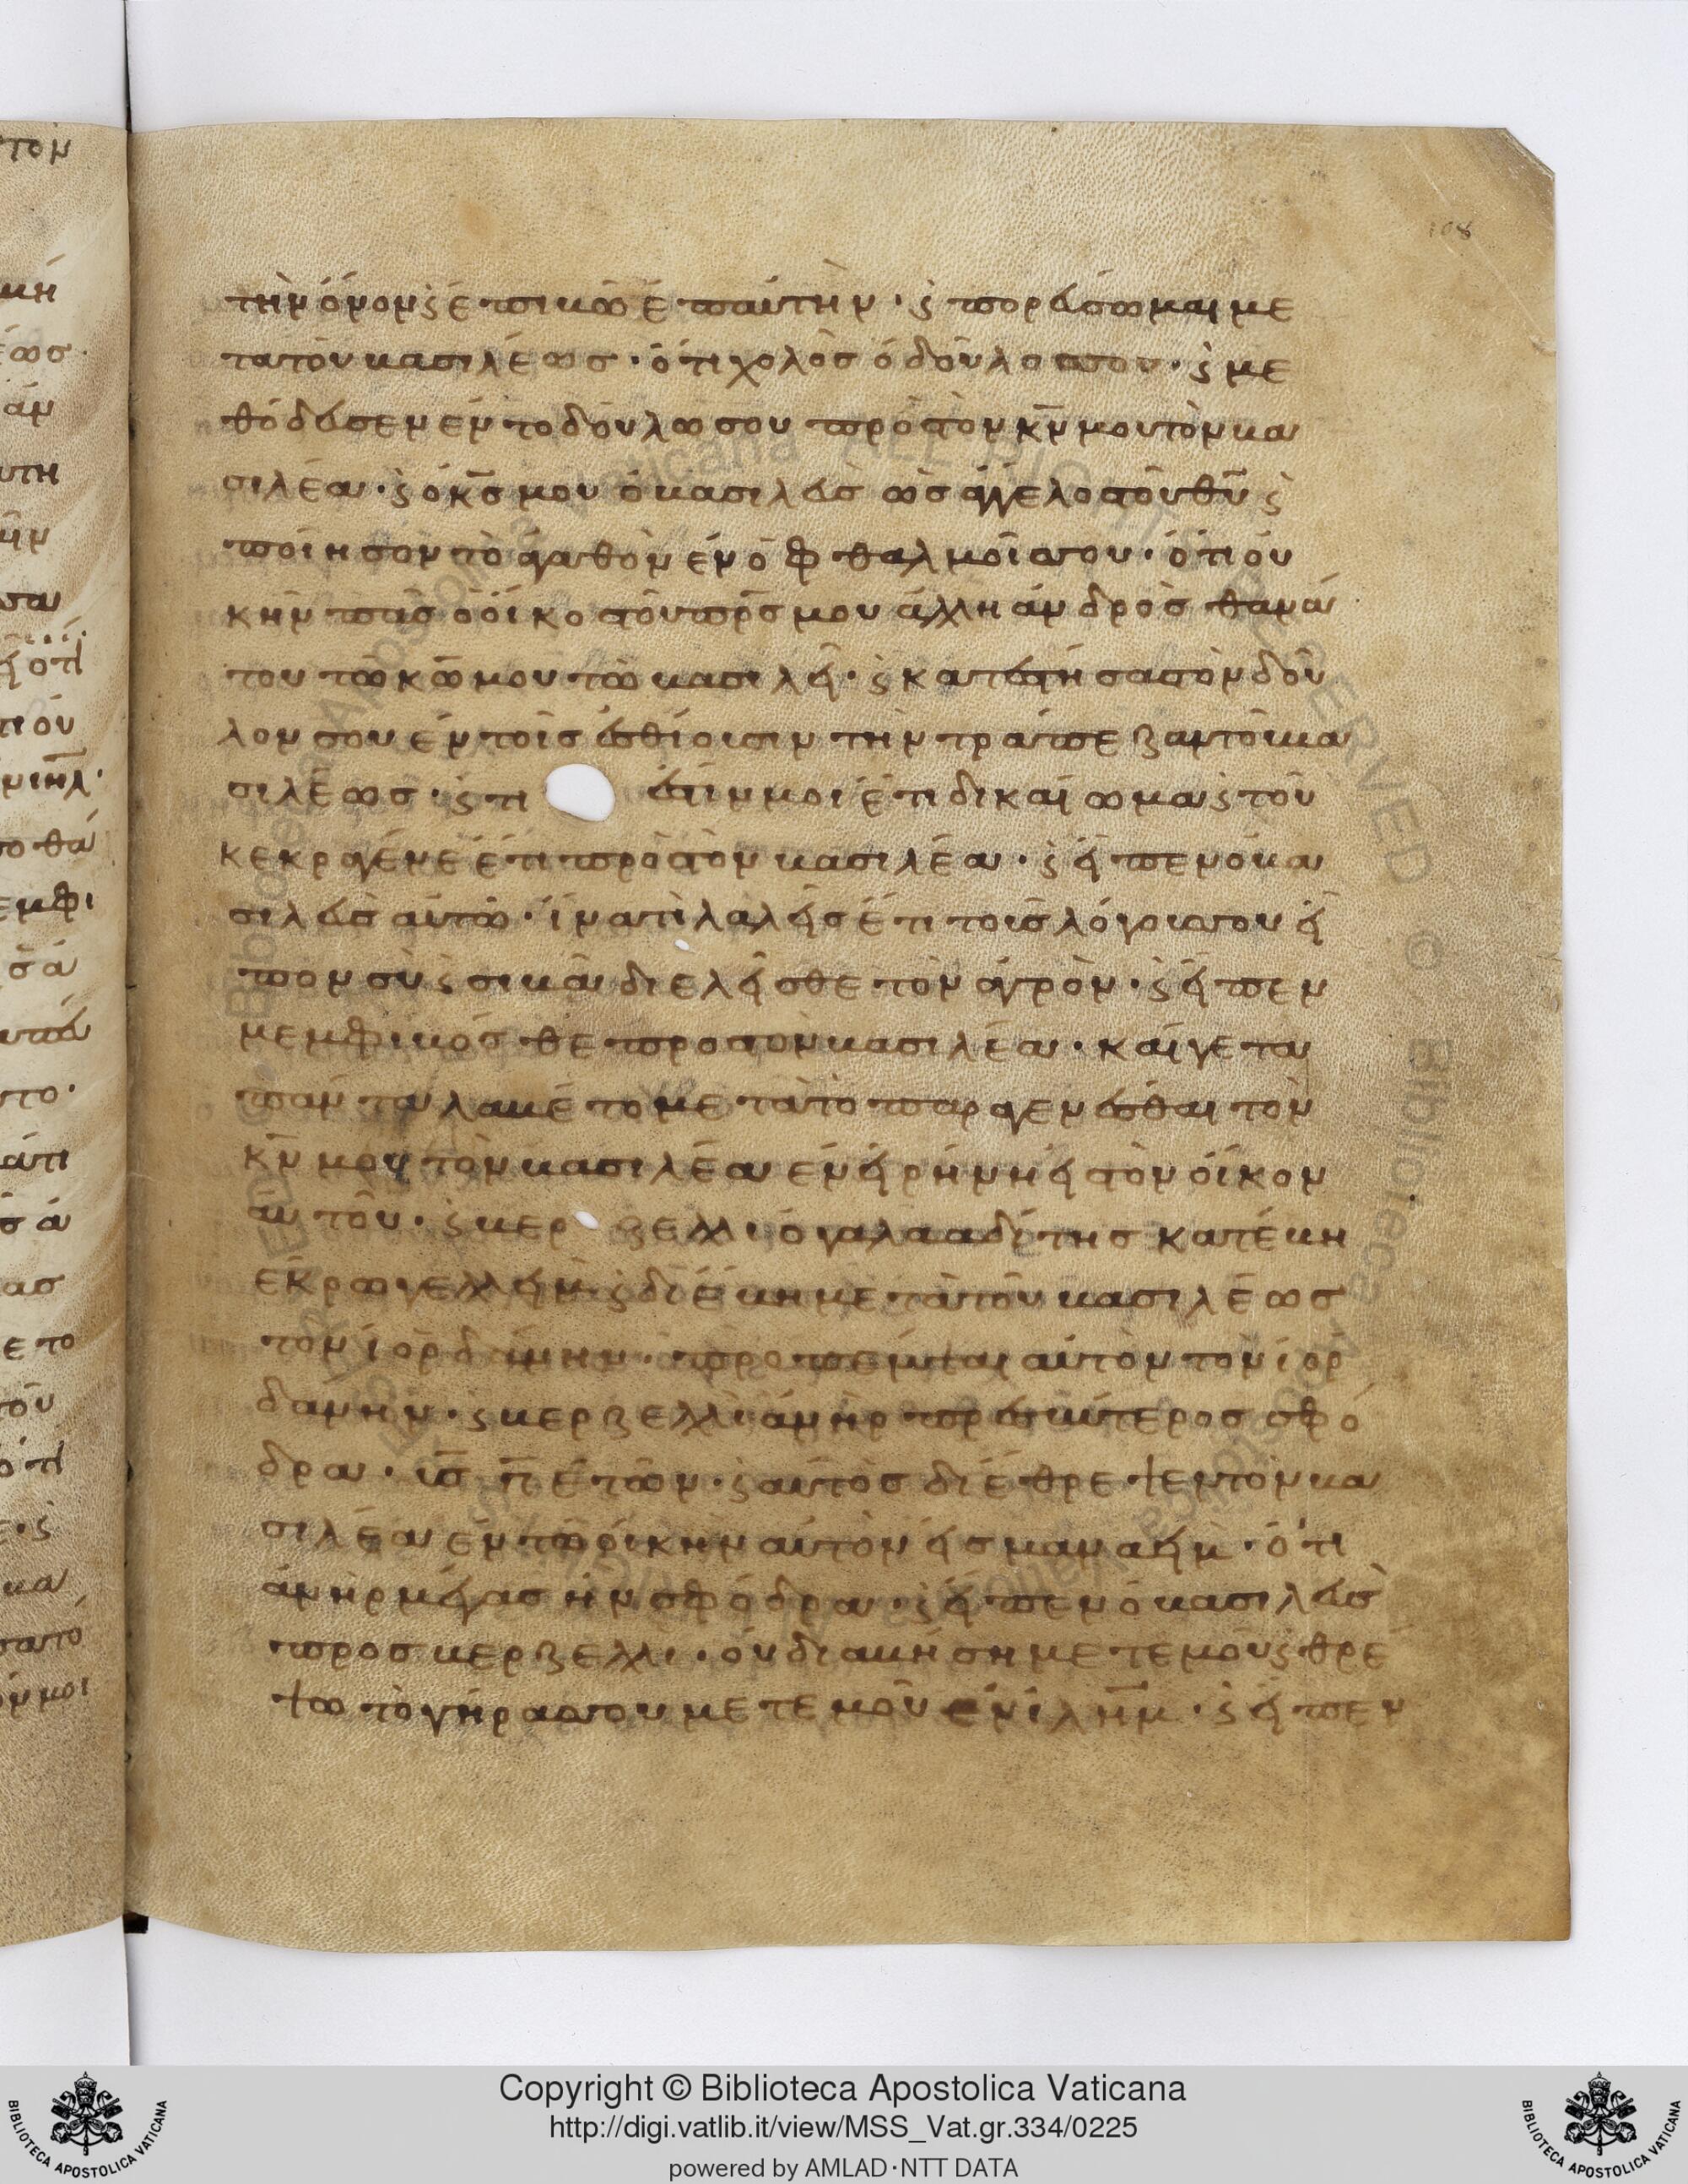 108
τὴν ὄνον ϗ ἐπιβῶ ἐπ αὐτὴν · ϗ πορεύσωμαι με
τα τοῦ βασιλέως · ὅτι χολὸσ ὁ δοῦλοσ σου · ϗ με
θόδευσεν ἐν το δούλω σου πρὸσ τὸν κ̅ν̅ μου τὸν βα
σιλέα · ϗ ὁ κ̅ς̅ μου ὁ βασιλεὺσ ὡσ ἄγγελοσ τοῦ θ̅υ̅ ϗ
ποίησον τὸ ἀγαθὸν ἐν ὀφθαλμοῖσ σου · ὅτι οὐ
κ ἦν πᾶσ ὁ οἶκοσ τοῦ π̅ρ̅ς̅ μου ἀλλ ἢ ἄνδροσ θανά
του τῶ κ̅ω̅ μου τῶ βασιλεῖ · ϗ κατέστησασ τὸν δοῦ
λον σου ἐν τοῖσ ἐσθίουσιν τὴν τράπεζαν τοῦ βα
σιλέωσ · ϗ τί ἐστίν μοι ἔτι δικαίωμα ϗ τοῦ
κεκραγένε ἔτι πρὸσ τὸν βασιλέα · ϗ εἶπεν ὁ βα
σιλεὺσ αὐτῶ · ἵνα τί λαλεῖσ ἔτι τοὺσ λόγουσ σου εἶ
πον σὺ ϗ σιβᾶ διελεῖσθε τὸν ἀγρόν · ϗ εἶπεν
μεμφιβόσθε προσ τὸν βασιλέα · καί γε τα
πάντα λαβέτο μετὰ τὸ παραγενέσθαι τὸν
κ̅ν̅ μου τὸν βασιλέα ἐν εἰρήνη εἰσ τὸν οἶκον
αὐτοῦ · ϗ βερζελλὶ ὁ γαλααδίτησ κατέβη
ἐκ ρωγελλείμ · ϗ διέβη μετὰ τοῦ βασιλέωσ
τον ἰορδάνην · προπέμψαι αὐτὸν τον ἰορ
δανην · ϗ βερζελλὶ ἀνὴρ πρεσβύτεροσ σφό
δρα · υ̅ς̅ π̅ ἐτῶν · ϗ αὐτὸσ διέθρεψεν τὸν βα
σιλέα ἐν τῶ οἰκῆν αὐτὸν εἰσ μαναείμ · ὅτι
ἀνὴρ μέγασ ἦν σφόδρα · ϗ εἶπεν ὁ βασιλεὺσ
προσ βερζελλι · σὺ διαβήση μετ ἐμοῦ ϗ θρέ
ψω τὸ γῆρασ σου μετ ἐμοῦ ἐν ἰ̅λ̅η̅μ̅ · ϗ εἶπεν
Copyright © Biblioteca Apostolica Vaticana
http://digi.vatlib.it/view/MSS_Vat.gr.334/0225
powered by AMLAD·NTT DATA
BIBLIOTECA APOSTOLICA VATICANA
BIBLIOTECA APOSTOLICA VATICANA